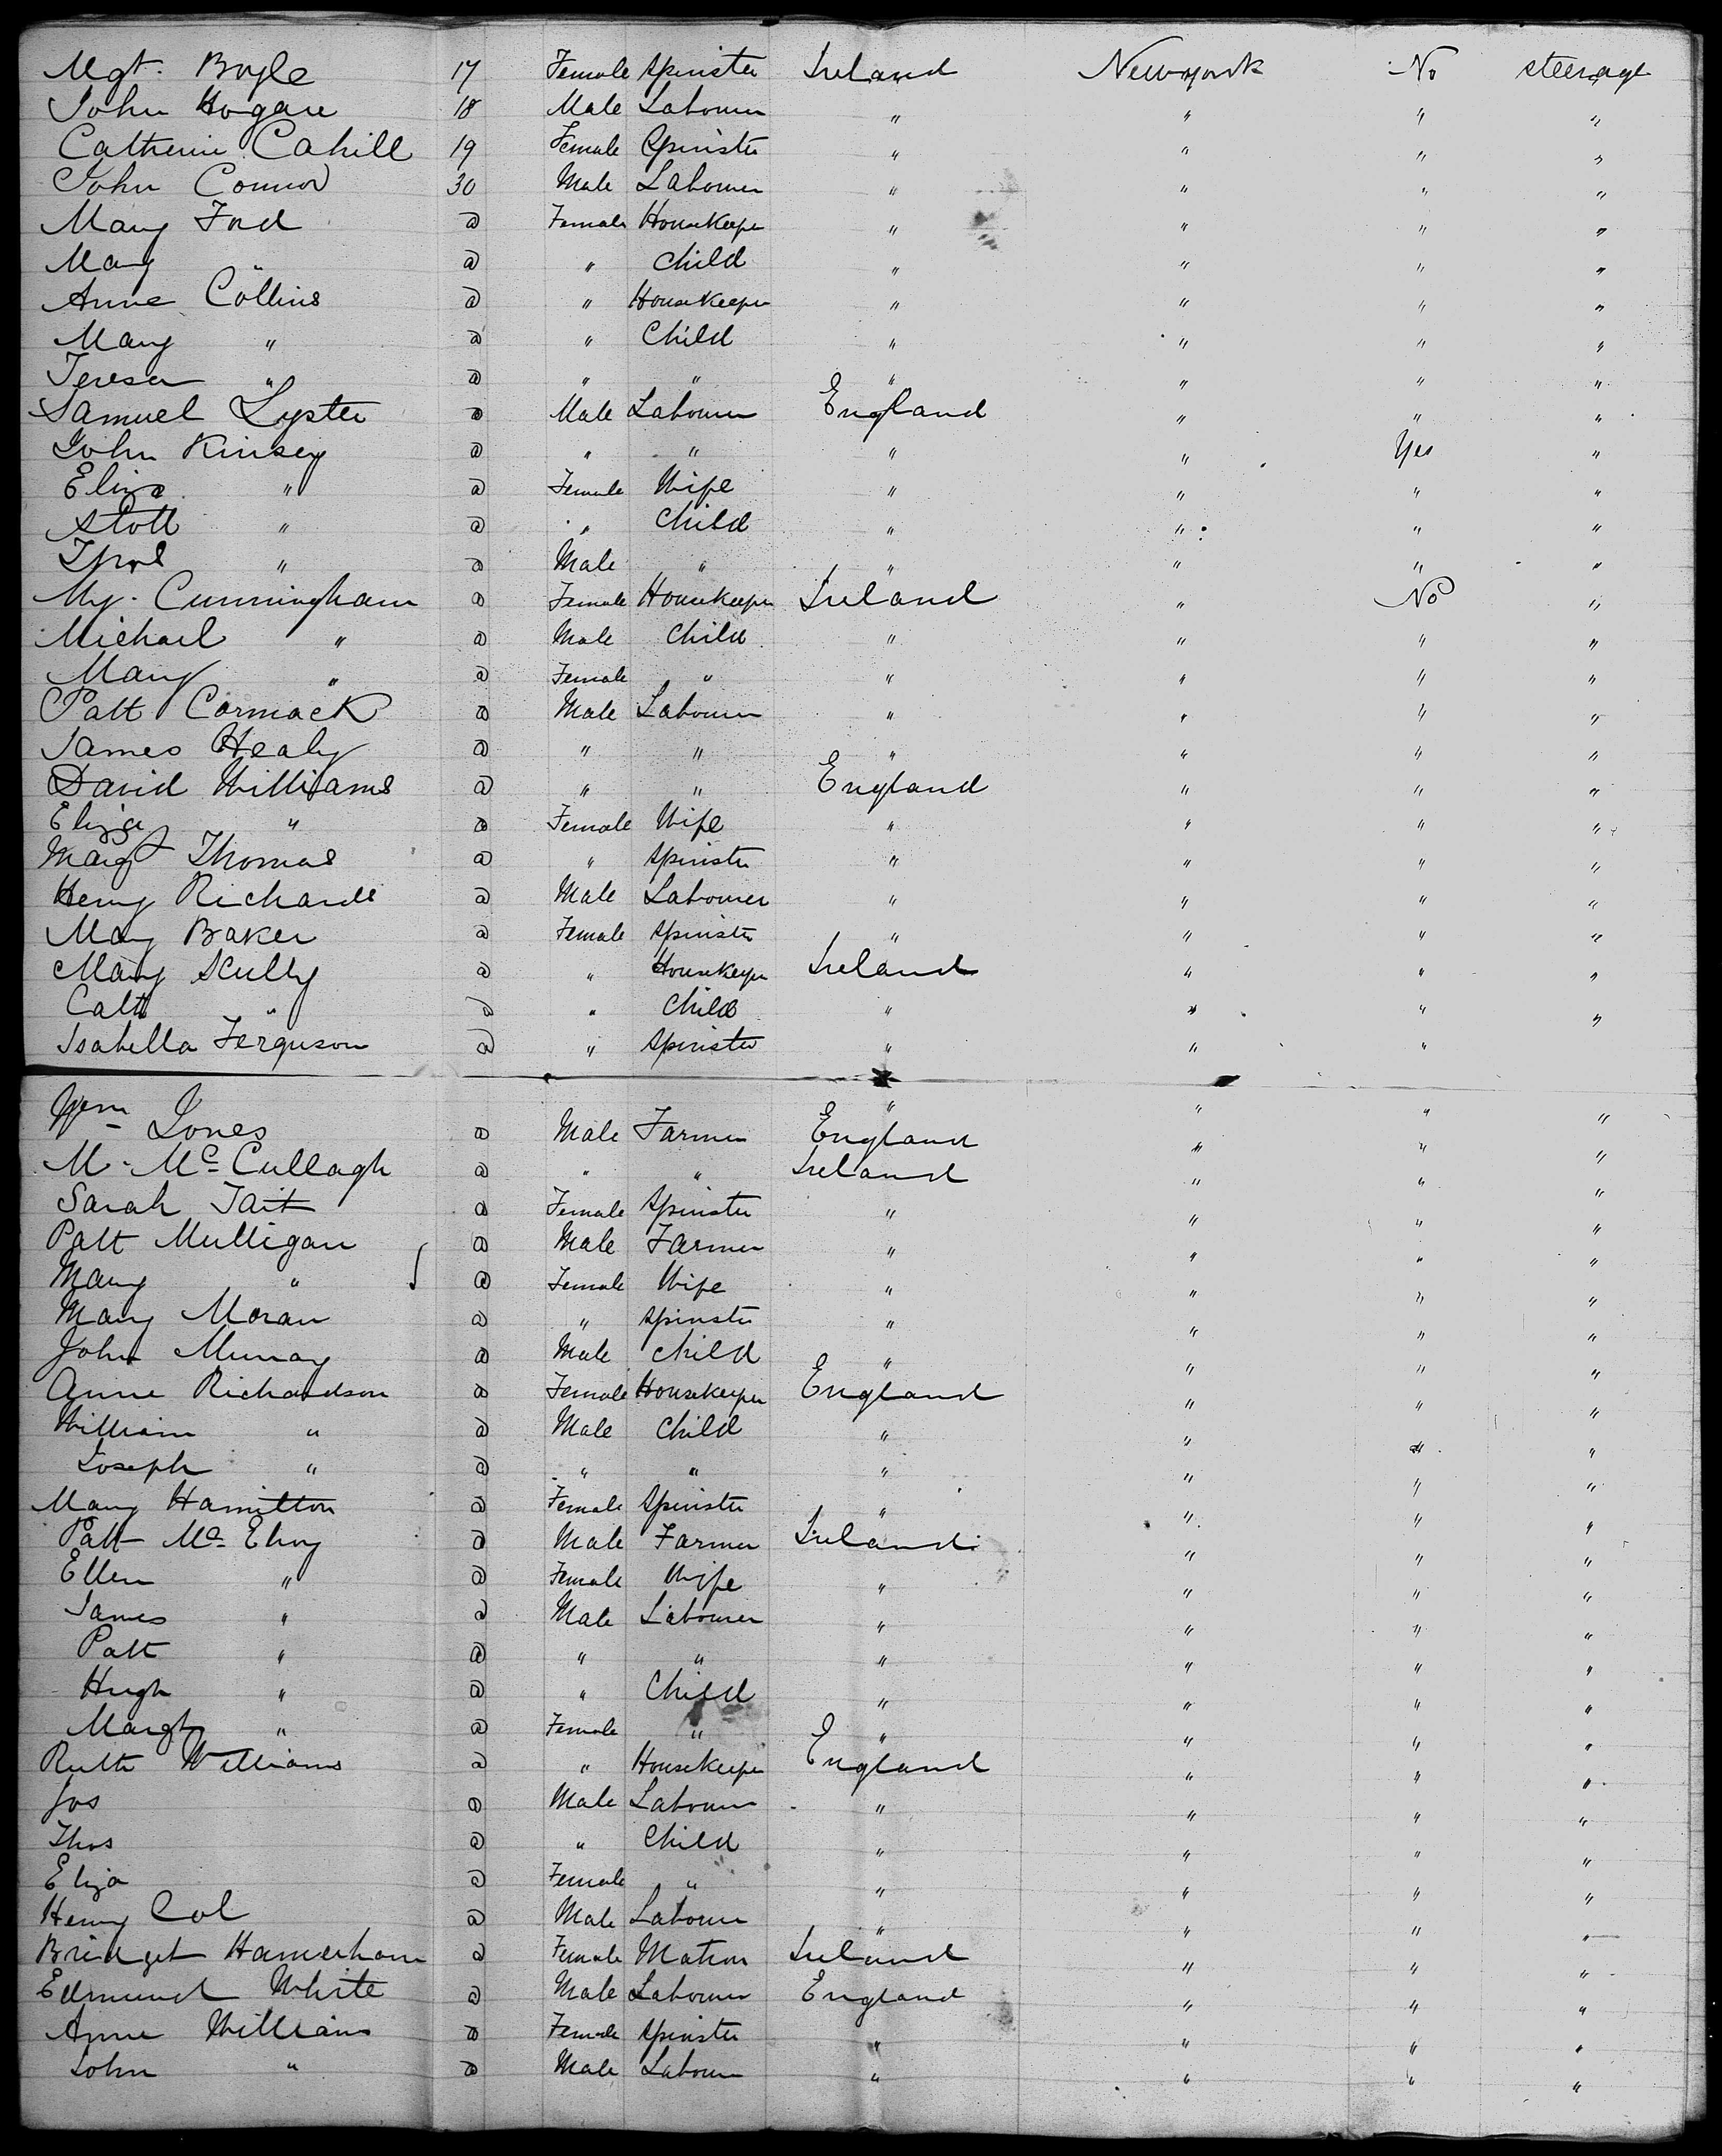 Mgt. Boyle 17 Female Spinster Ireland Newyork No steerage
John Hogan 18 Male Labourer " " " "
Catherine Cahill 19 Female Spinster " " " "
John Connor 30 Male Labourer " " " "
Mary Ford @ Female HouseKeeper " " " "
Mary " @ " Child " " " "
Anne Collins @ " HouseKeeper " " " "
Mary " @ " Child " " " "
Teresa " @ " " " " " "
Samuel Lyster @ Male Labourer England " " "
John Kinsey @ " " " " Yes "
Eliza " @ Female Wife " " " "
" @ " Child " " " "
" @ Male " " " " "
My. Cunningham @ Female HouseKeeper Ireland " No "
Michael " @ Male Child " " " "
Mary " @ Female " " " " "
Patt Cormack @ Male Labourer " " " "
James Healy @ " " " " " "
David Williams @ " " England " " "
Eliza " @ Female Wife " " " "
Margt Thomas @ " Spinster " " " "
Henry Richards @ Male Labourer " " " "
Mary Baker @ Female Spinster " " " "
Mary Scully @ " HouseKeeper Ireland " " "
Cath " @ " Child " " " "
Isabella Ferguson @ " Spinster " " "
" " " "
Wm Jones @ Male Farmer England " " "
M. Mc Cullagh @ " " Ireland " " "
Sarah Tait @ Female Spinster " " " "
Patt Mulligan @ Male Farmer " " " "
Mary " @ Female Wife " " " "
Mary Moran @ " Spinster " " " "
John Murray @ Male Child " " " "
Anne Richardson @ Female Housekeeper England " " "
William " @ Male Child " " " "
Joseph " @ " " " " " "
Mary Hamilton @ Female Spinster " " " "
Patt Mc Elroy @ Male Farmer Ireland " " "
Ellen " @ Female Wife " " " "
James " @ Male Labourer " " " "
Patt " @ " " " " " "
Hugh " @ " Child " " " "
Margt " @ Female " " " " "
Ruth Williams @ " HouseKeeper England " " "
Jos @ Male Labourer " " " "
Thos @ " Child " " " "
Eliza @ Female " " " " "
Henry Col @ Male Labourer " " " "
Bridget @ Female Matron Ireland " " "
Edmund White @ Male Labourer England " " "
Anne Williams @ Female Spinster " " " "
John " @ Male Labourer " " " "